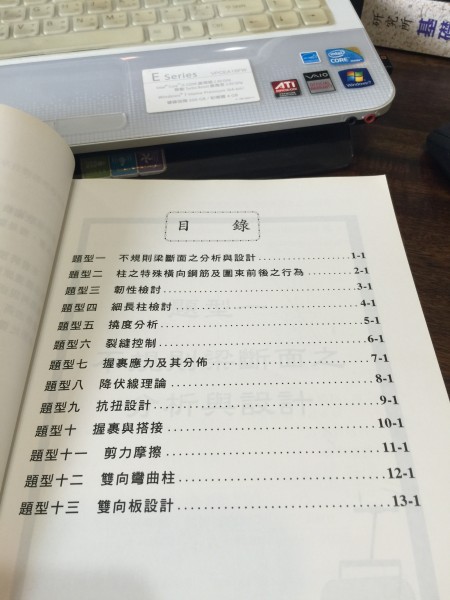 研究所
基礎
E Series
intel
CORE
ATI
VAIO
Windows 7
目 錄
題型一 不規則梁斷面之分析與設計 1-1
題型二 柱之特殊橫向鋼筋及圍束前後之行為 2-1
題型三 韌性檢討 3-1
題型四 細長柱檢討 4-1
題型五 撓度分析 5-1
題型六 裂縫控制 6-1
題型七 握裹應力及其分佈 7-1
題型八 降伏線理論 8-1
題型九 抗扭設計 9-1
題型十 握裹與搭接 10-1
題型十一 剪力摩擦 11-1
題型十二 雙向彎曲柱 12-1
題型十三 雙向板設計 13-1